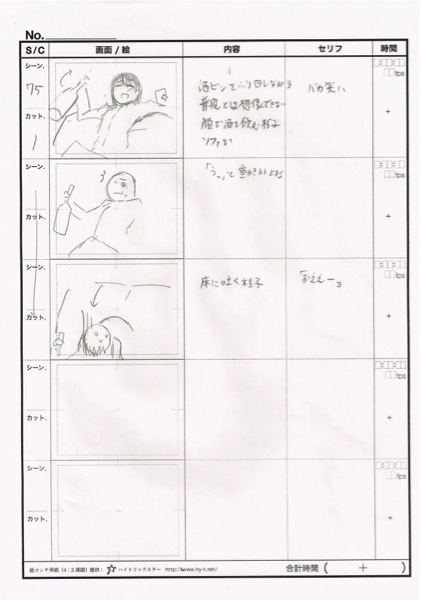 No.
S/C 画面 / 絵 内容 セリフ 時間
シーン.
75
カット.
1
酒ビンをふり回しながら
普段とは想像できない
顔で酒を飲む桂子
ソファで
バカ笑い
fps
+
シーン.
カット.
「うっ」と動きが止まる
fps
+
シーン.
カット.
床に吐く桂子
「おええー」
fps
+
シーン.
カット.
fps
+
シーン.
カット.
fps
+
絵コンテ用紙(4:3画面)提供: ハイトリックスター http://www.hy-t.net/
合計時間 ( + )